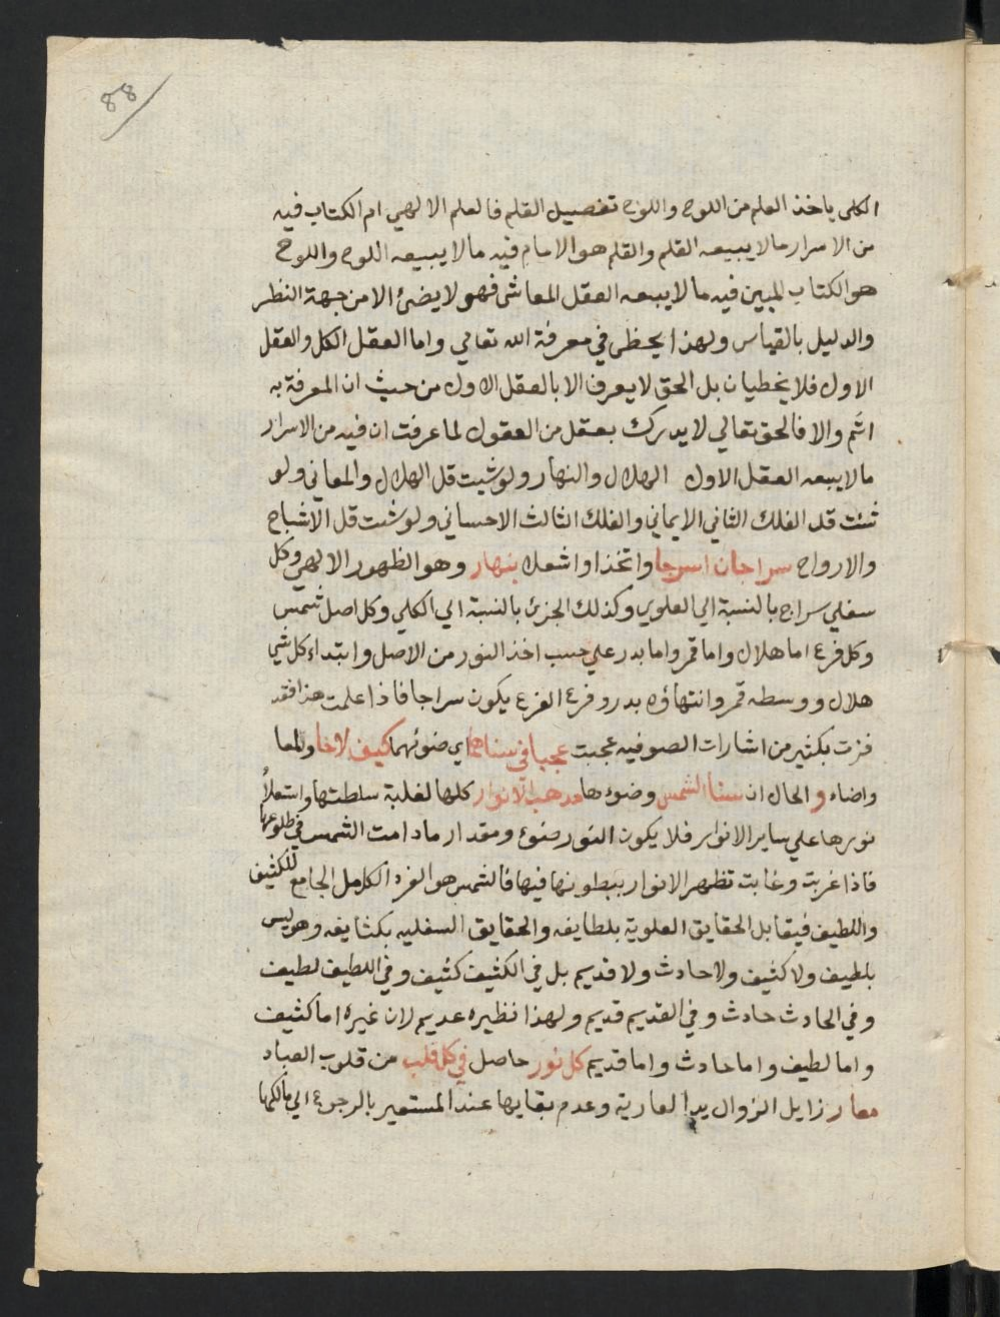 88
الكلى ياخذ العلم من اللوح واللوح تفصيل القلم فالعلم الالهي ام الكتاب فيه
من الاسرار مالا يسعه القلم والقلم هو الامام فيه مالا يسعه اللوح واللوح
هو الكتاب المبين فيه مالا يسعه العقل المعاشى فهو لا يضئ الا من جهة النظر
والدليل بالقياس ولهذا يخطى في معرفة الله تعالي واما العقل الكل والعقل
الاول فلا يخطيان بل الحق لا يعرف الا بالعقل الاول من حيث ان المعرفة به
اتم والا فالحق تعالي لا يدرك بعقل من العقول لما عرفت ان فيه من الاسرار
مالا يسعه العقل الاول الهلال والنهار ولو شيت قل الهلال والمعاني ولو
شئت قل الفلك الثاني الايماني والفلك الثالث الاحساني ولو شئت قل الاشباح
والارواح سراجان اسرجا واتخذا واشعلا بنهار وهو الظهور الالهي وكل
سفلي سراج بالنسبة الي العلوي وكذلك الجزئ بالنسبة الي الكلي وكل اصل شمس
وكل فرع اما هلال واما قمر واما بدر علي حسب اخذ النور من الاصل وابتداء كل شي
هلال ووسطه قمر وانتهاؤه بدر وفرع الفرع يكون سراجا فاذا علمت هذا فقد
فزت بكثير من اشارات الصوفيه عجبت عجبا في سناهما اي ضوئهما كيف لاحا ولمعا
واضاء والحال ان سنا الشمس وضوءها مذهب الانوار كلها لغلبة سلطتها واستعلاء
نورها علي ساير الانوار فلا يكون النور ضوء ومقدار مادامت الشمس في طلوعها
فاذا غربت وغابت تظهر الانوار ببطونها فيها فالشمس هو الفرد الكامل الجامع للكثيف
واللطيف فيقابل الحقايق العلوية بلطايفه والحقايق السفليه بكثايفه وهو ليس
بلطيف ولا كثيف ولا حادث ولا قديم بل في الكثيف كثيف وفي اللطيف لطيف
وفي الحادث حادث وفي القديم قديم ولهذا نظيره عديم لان غيره اما كثيف
واما لطيف واما حادث واما قديم كل نور حاصل في كل قلب من قلوب العباد
معار زايل الزوال يد العارية وعدم بقايها عند المستعير بالرجوع الي مالكها